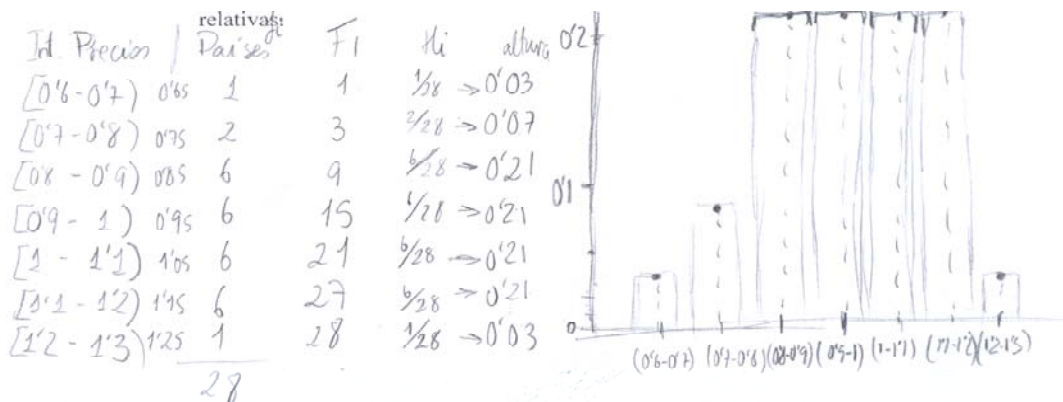 relativas:
Int. Precios | Países fi Fi Hi altura
[0'6-0'7) 0'65 1 1 1/28 → 0'03
[0'7-0'8) 0'75 2 3 2/28 → 0'07
[0'8 - 0'9) 0'85 6 9 6/28 → 0'21
[0'9 - 1) 0'95 6 15 6/28 → 0'21
[1 - 1'1) 1'05 6 21 6/28 → 0'21
[1'1 - 1'2) 1'15 6 27 6/28 → 0'21
[1'2 - 1'3) 1'25 1 28 1/28 → 0'03
28
0'2
0'1
0
(0'6-0'7) (0'7-0'8) (0'8-0'9) (0'9-1) (1-1'1) (1'1-1'2) (1'2-1'3)